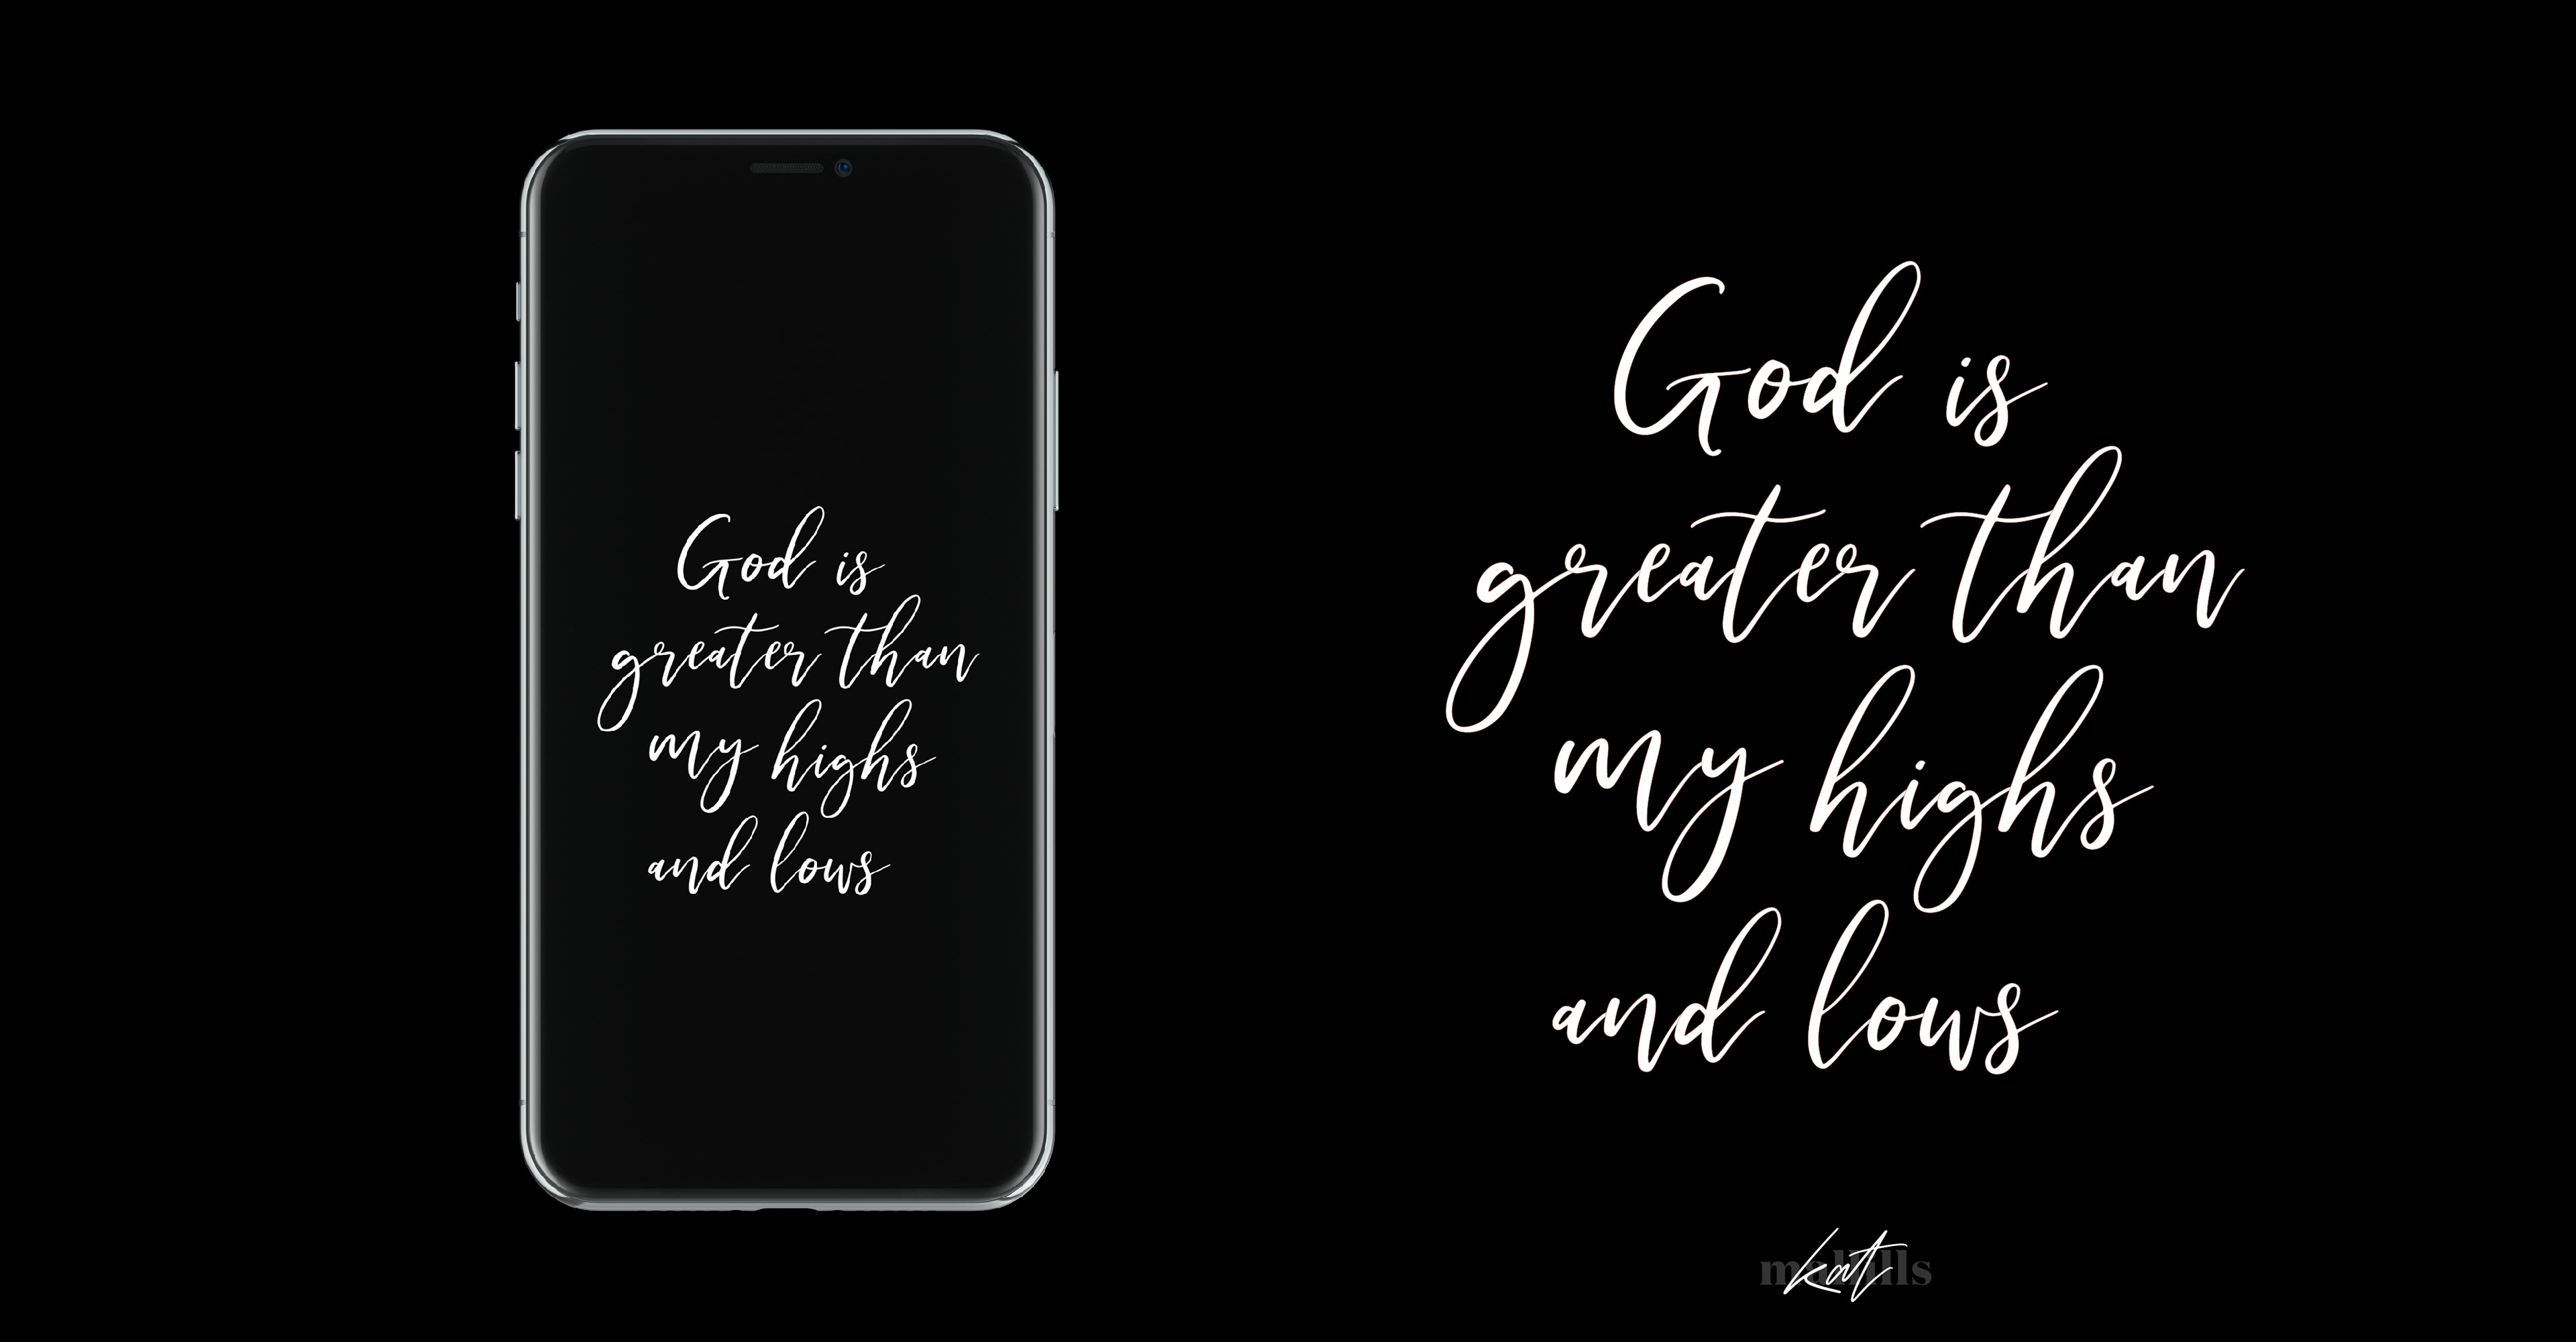 God is
greater than
my highs
and lows
God is
greater than
my highs
and lows
kat